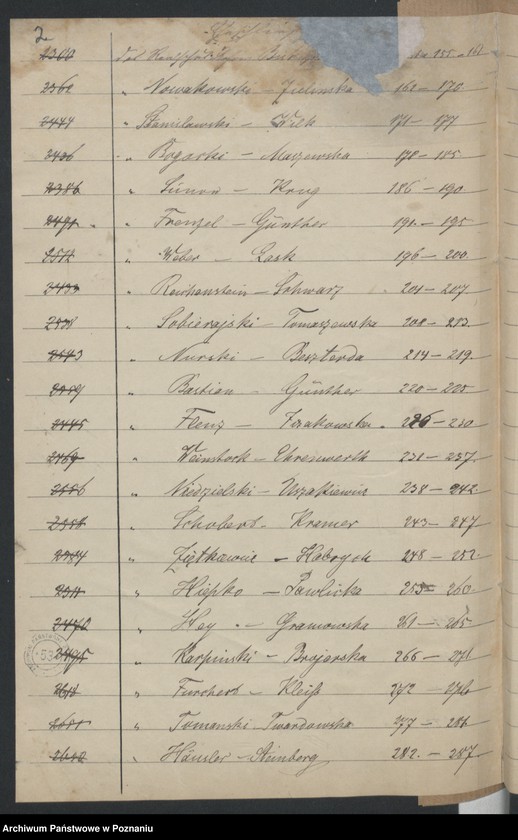 2.
2300 155 - 161
2362 " Nowakowski - Zielinska 162 - 170.
2444 " Stanilawski - Wilk 171 - 177
" Bogacki - Maszewska 178 - 185
2386 " Simon - Krug 186 - 190
2491 " Frenzel - Günther 191. - 195
2512 " Weber - Lask 196 - 200.
2433 " Reichenstein - Schwarz 201 - 207
" Sobierajski - Tomaszewska 208 - 213.
2543 " Nurski - Beszterda 214 - 219.
" Bastian - Günther 220 - 225
2445 " Flenz - 226 - 230
2469 " Weinstock - Ehrenwerth 231 - 237.
2556 " Niedzielski - 238 - 242
" Schobert - Kremer 243 - 247
" Ziętkiewicz - 248 - 252.
" Kiepko - Pawlicka 253 - 260
2470 " Hey - Gramowska 261 - 265
2495 " Karpinski - Brojarska 266 - 271
" Furchert - Kleiß 272 - 276
" Tomanski - Twardowska 277 - 281
2600 " Häusler - 282. - 287.
Archiwum Państwowe w Poznaniu